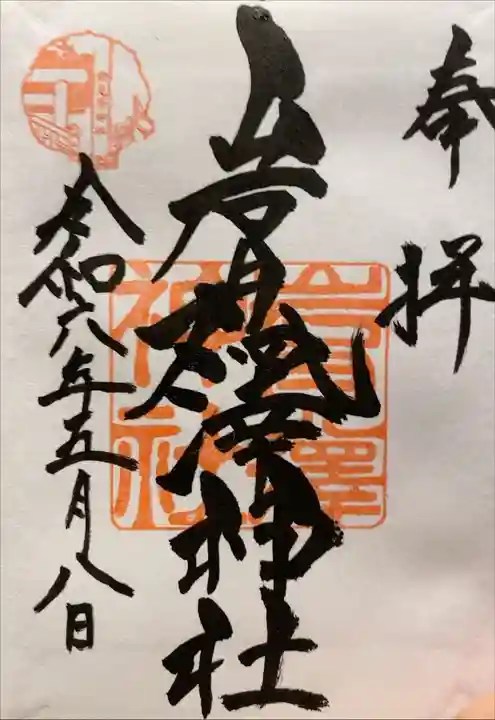 奉拝
岩見澤神社
令和六年五月八日
岩見澤
神社